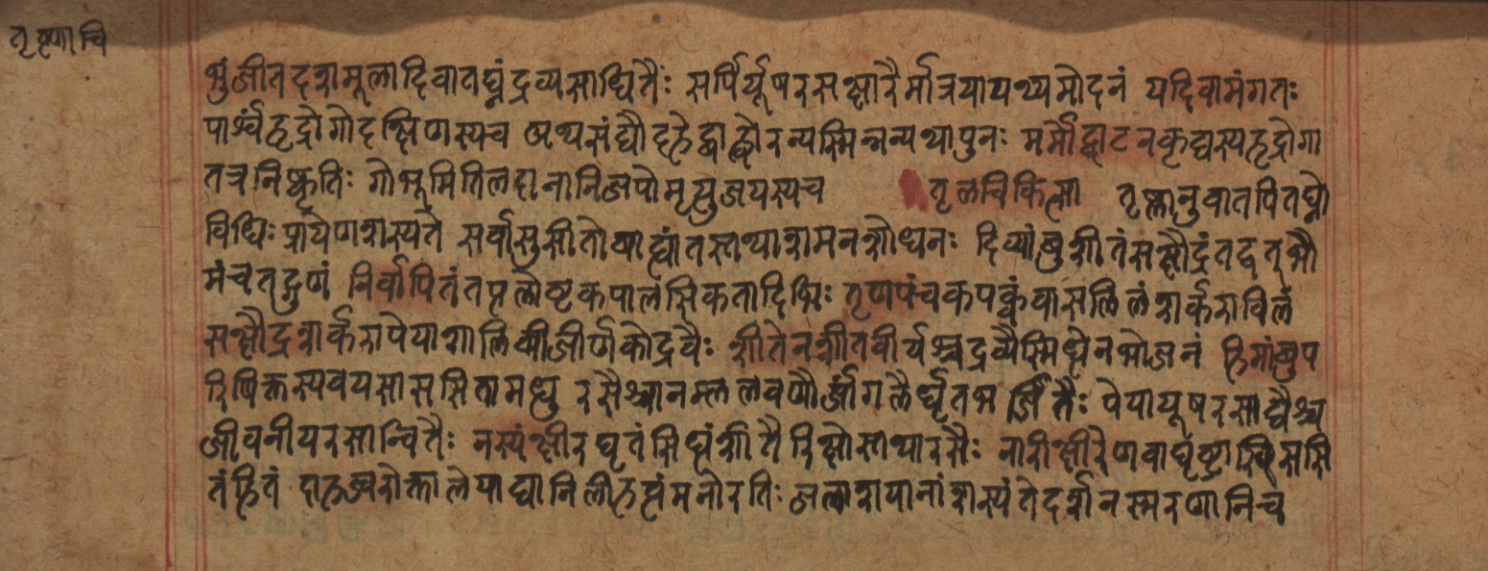 तृष्णाचि
भुंजीतदशमूलादिवातघ्नंद्रव्यसाधितैः सर्पिर्यूषरसक्षारैर्मात्रयापथ्यमोदनं यदिवामंगतः
पार्श्वंहृद्रोगोदक्षिणस्यच अथसंघौदहेद्वाह्वोरन्यस्मिन्नन्यथापुनः मर्मोद्घाटनकृद्यस्यहृद्रोगा
तत्रनिष्कृतिः गोभूमितिलदानानिजपोमृत्युंजयस्यच तृलचिकित्सा तृष्णानुवातपितघ्नो
विधिःप्रायेणशस्यते सर्वासुसीतोबाह्यांतस्तथाशमनशोधनः दिव्यांबुशीतंसक्षौद्रंतद्वत्भौ
मंचतद्गुणं निर्वापितंतप्तलोष्टकपालसिकतादिभिः तृणपंचकपक्वंवासलिलंशर्कराविलं
सक्षौद्रशर्करापेयाशालिभीजीर्णकोद्रवैः शीतेनशीतवीर्यश्चद्रव्यैस्सिद्धेनभोजनं हिमांबुप
रिषिक्तस्यवयसाससितामधु रसैश्चानम्ललवणैर्जांगलैर्घृतभर्जितैः पेयायूषरसाद्यैश्च
जीवनीयरसान्वितैः नस्यंक्षीरघृतंसिद्धंशीतैरिक्षोस्तथारसैः नारीक्षीरेणवाघृष्टास्थिससि
तंहितं दाहज्वरोक्तालेपाद्यानिलीहत्वंमनोरतिः जलाशयानांशस्यंतेदर्शनस्मरणानिच